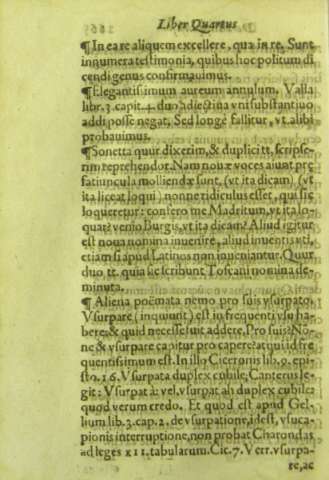 Liber Quartus
¶ In ea re aliquem excellere, qua in re. Sunt
innumera testimonia, quibus hoc politum di
cendi genus confirmauimus.
¶ Elegantissimum aureum annulum. Valla
libr. 3. capit. 4. duo adiectiua vni substantiuo
addi posse negat. Sed longè fallitur, vt alibi
probauimus.
¶ Sonetta quur dixerim, & duplici tt, scripse-
rim reprehendor. Nam nouæ voces aiunt præ
fatiuncula molliendæ sunt, (vt ita dicam) (vt
ita liceat loqui) nonne ridiculus esset, qui sic
loqueretur: confero me Madritum, vt ita lo-
quar? venio Burgis, vt ita dicam? Aliud igitur
est noua nomina inuenire, aliud inuentis vti,
etiam si apud Latinos non inueniantur. Quur
duo tt. quia sic scribunt Toscani nomina de-
minuta.
¶ Aliena poëmata nemo pro suis vsurpato.
Vsurpare (inquiunt) est in frequenti vsu ha-
bere: & quid necesse fuit addere, Pro suis? No-
ne & vsurpare capitur pro capere? atqui id fre
quentissimum est. In illo Ciceronis lib. 9. epi-
sto. 26. Vsurpata duplex cubile, Canterus le-
git: Vsurpat à: vel, vsurpat ah duplex cubile:
quod verum credo. Et quod est apud Gel-
lium lib. 3. cap. 2. de vsurpatione, idest, vsuca-
pionis interruptione, non probat Charondas
ad leges XII. tabularum. Cic. 7. Verr. vsurpa-
re, ac